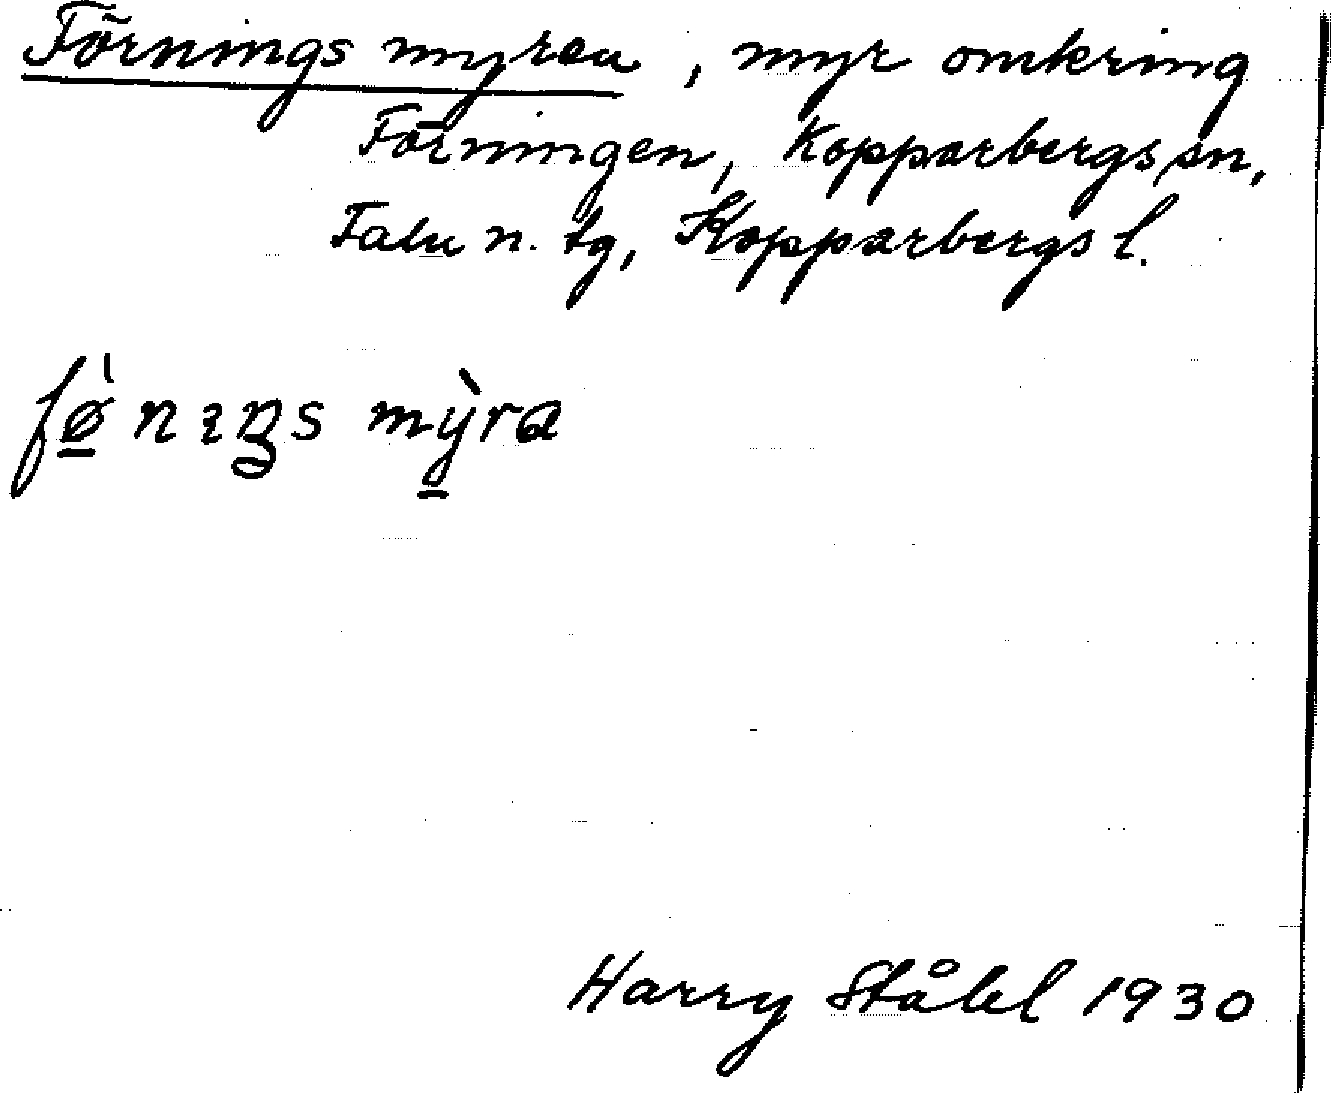 Förnings myren, myr omkring
Förningen, Kopparbergs sn,
Falu n. tg, Kopparbergs l.
fø̠̀nɪŋs mỳ̠ra
Harry Ståhl 1930